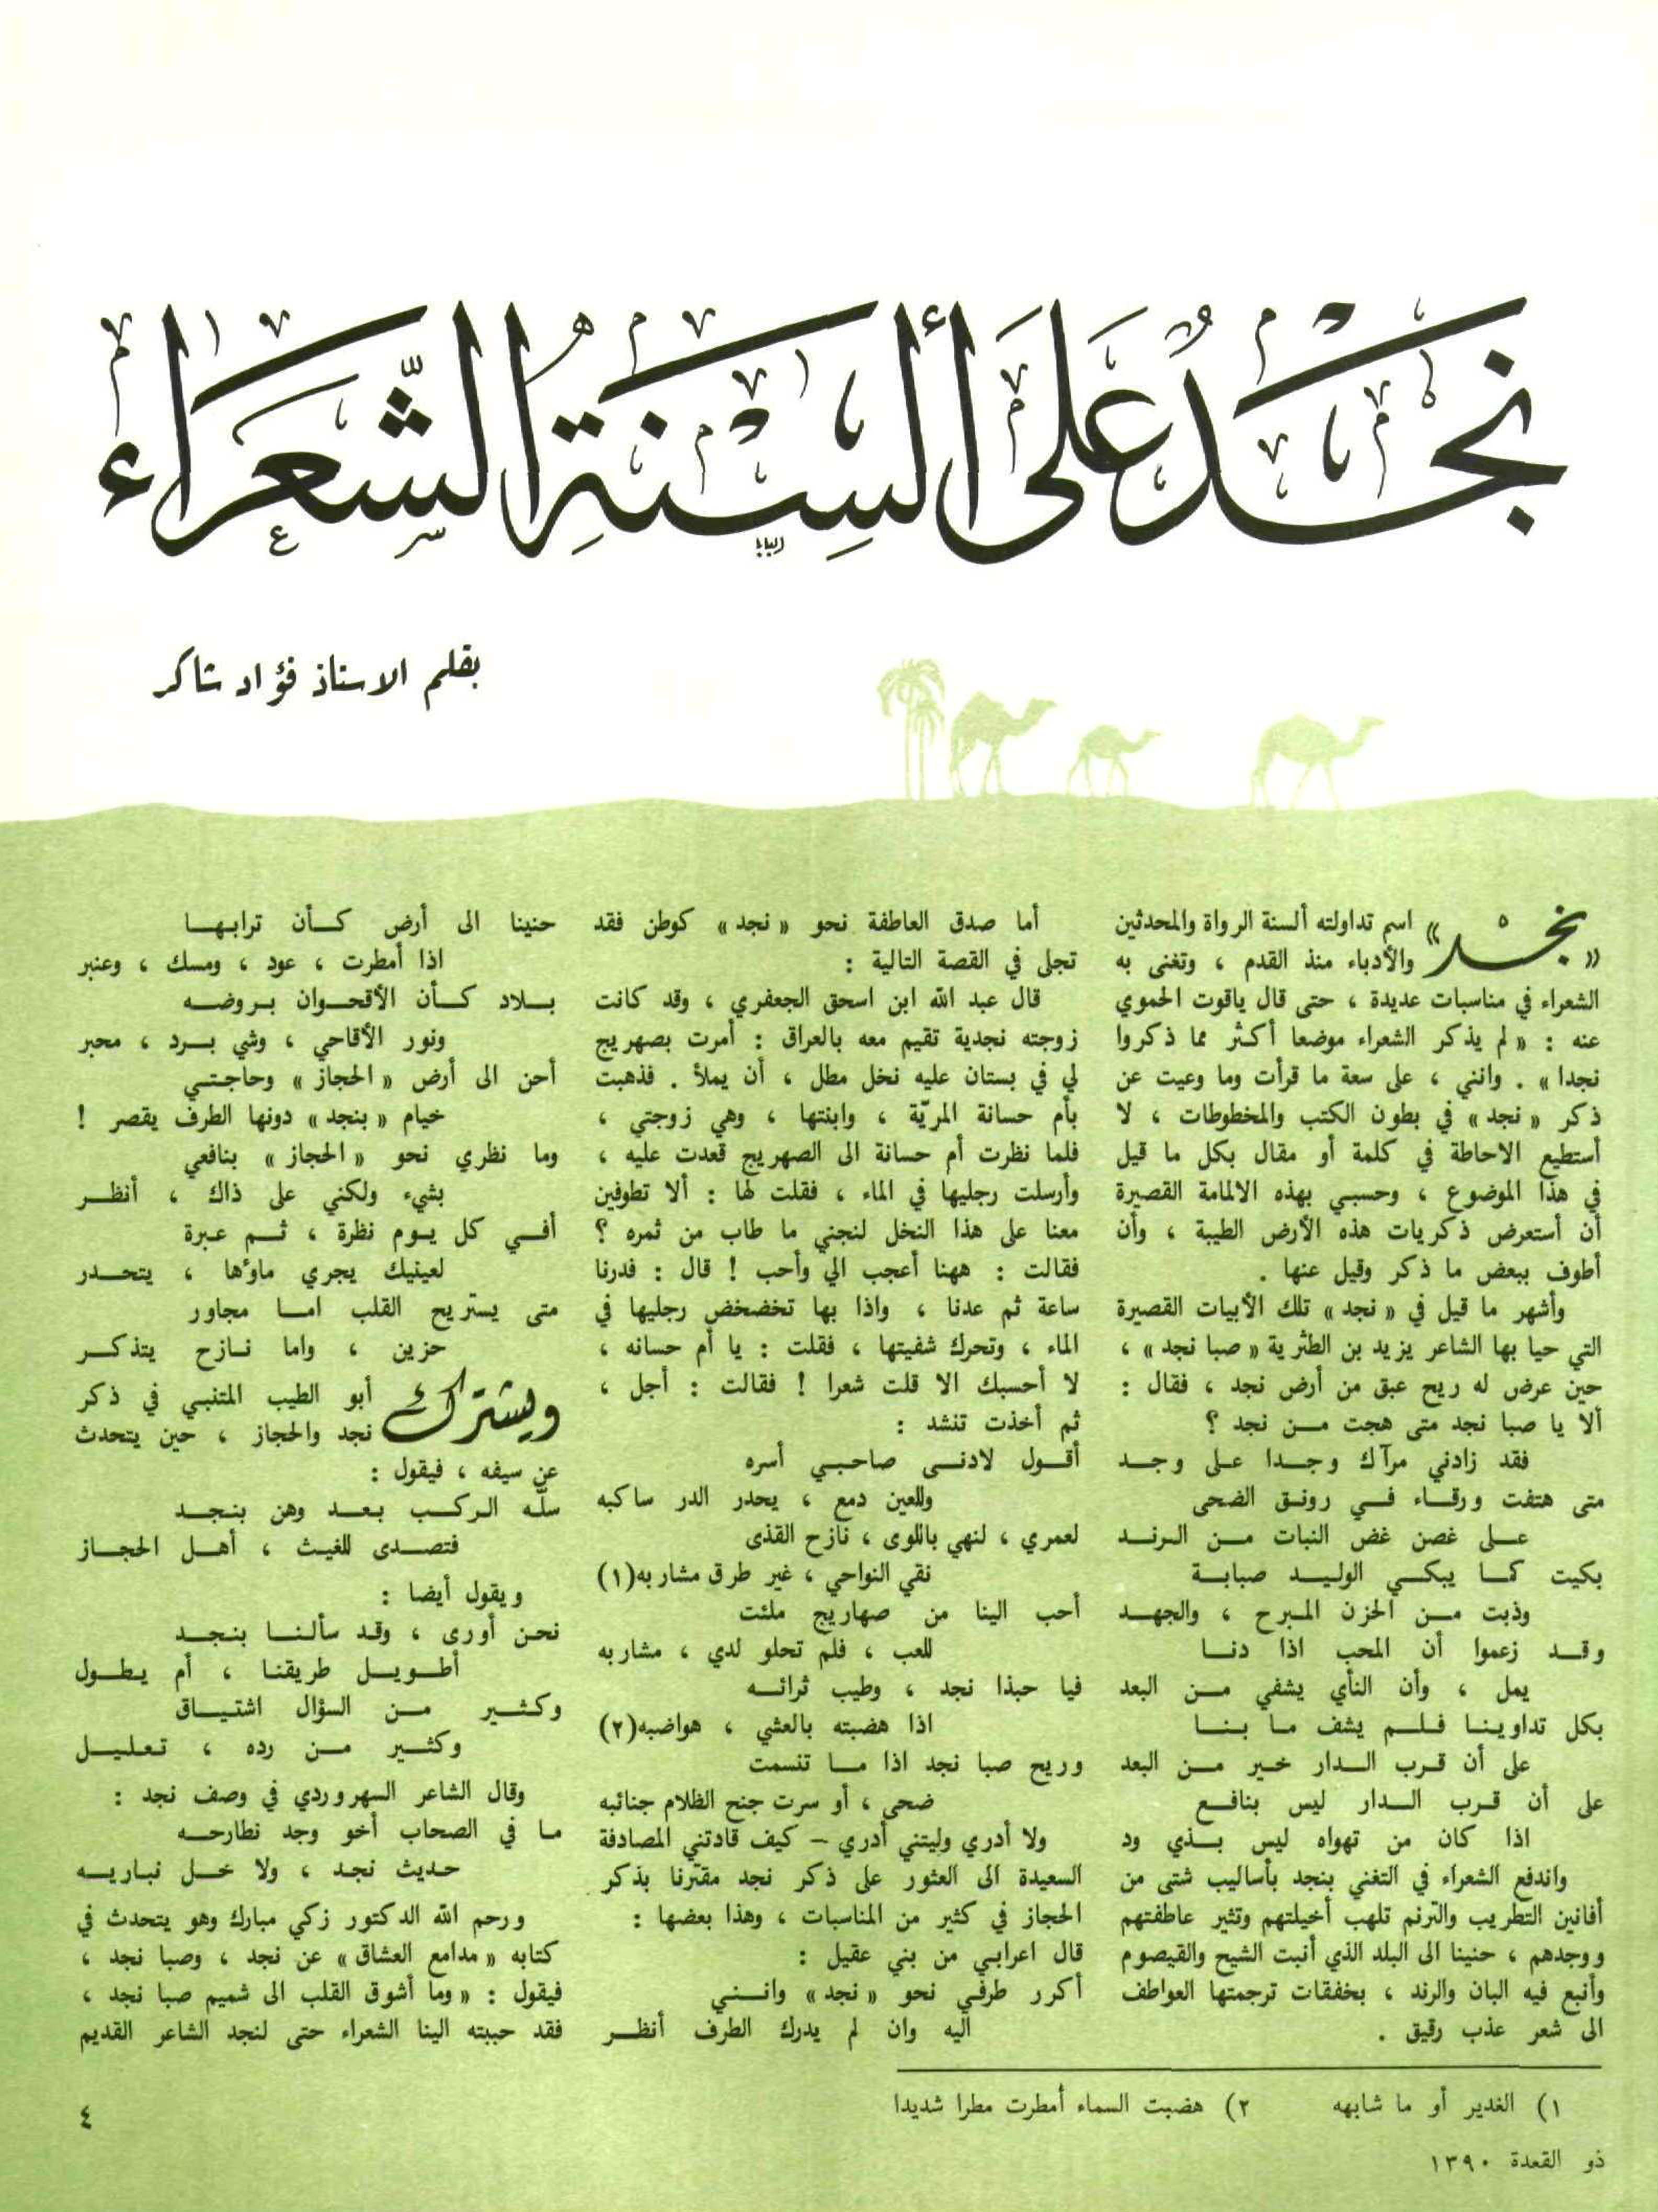 نجد على ألسنة الشعراء
بقلم الاستاذ فؤاد شاكر
« نجد » اسم تداولته ألسنة الرواة والمحدثين
والأدباء منذ القدم ، وتغنى به
الشعراء في مناسبات عديدة ، حتى قال ياقوت الحموي
عنه : « لم يذكر الشعراء موضعا أكثر مما ذكروا
نجدا » . وانني ، على سعة ما قرأت وما وعيت عن
ذكر « نجد » في بطون الكتب والمخطوطات ، لا
أستطيع الاحاطة في كلمة أو مقال بكل ما قيل
في هذا الموضوع ، وحسبي بهذه الالمامة القصيرة
أن أستعرض ذكريات هذه الأرض الطيبة ، وأن
أطوف ببعض ما ذكر وقيل عنها .
وأشهر ما قيل في « نجد » تلك الأبيات القصيرة
التي حيا بها الشاعر يزيد بن الطثرية « صبا نجد » ،
حين عرض له ريح عبق من أرض نجد ، فقال :
ألا يا صبا نجد متى هجت من نجد ؟
فقد زادني مرآك وجدا على وجد
متى هتفت ورقاء في رونق الضحى
على غصن غض النبات من الرند
بكيت كما يبكي الوليد صبابة
وذبت من الحزن المبرح ، والجهد
وقد زعموا أن المحب اذا دنا
يمل ، وأن النأي يشفي من البعد
بكل تداوينا فلم يشف ما بنا
على أن قرب الدار خير من البعد
على أن قرب الدار ليس بنافع
اذا كان من تهواه ليس بذي ود
واندفع الشعراء في التغني بنجد بأساليب شتى من
أفانين التطريب والترنم تلهب أخيلتهم وتثير عاطفتهم
ووجدهم ، حنينا الى البلد الذي أنبت الشيح والقيصوم
وأنبع فيه البان والرند ، بخفقات ترجمتها العواطف
الى شعر عذب رقيق .
أما صدق العاطفة نحو « نجد » كوطن فقد
تجلى في القصة التالية :
قال عبد الله ابن اسحق الجعفري ، وقد كانت
زوجته نجدية تقيم معه بالعراق : أمرت بصهريج
لي في بستان عليه نخل مطل ، أن يملأ . فذهبت
بأم حسانة المريّة ، وابنتها ، وهي زوجتي ،
فلما نظرت أم حسانة الى الصهريج قعدت عليه ،
وأرسلت رجليها في الماء ، فقلت لها : ألا تطوفين
معنا على هذا النخل لنجني ما طاب من ثمره ؟
فقالت : ههنا أعجب الي وأحب ! قال : فدرنا
ساعة ثم عدنا ، واذا بها تخضخض رجليها في
الماء ، وتحرك شفيتها ، فقلت : يا أم حسانه ،
لا أحسبك الا قلت شعرا ! فقالت : أجل ،
ثم أخذت تنشد :
أقول لادنى صاحبي أسره
وللعين دمع ، يحدر الدر ساكبه
لعمري ، لنهي باللوى ، نازح القذى
نقي النواحي ، غير طرق مشاربه(١)
أحب الينا من صهاريج ملئت
للعب ، فلم تحلو لدي ، مشاربه
فيا حبذا نجد ، وطيب ثرائه
اذا هضبته بالعشي ، هواضبه(٢)
وريح صبا نجد اذا ما تنسمت
ضحى ، أو سرت جنح الظلام جنائبه
ولا أدري وليتني أدري – كيف قادتني المصادفة
السعيدة الى العثور على ذكر نجد مقترنا بذكر
الحجاز في كثير من المناسبات ، وهذا بعضها :
قال اعرابي من بني عقيل :
أكرر طرفي نحو « نجد » وانني
اليه وان لم يدرك الطرف أنظر
حنينا الى أرض كأن ترابها
اذا أمطرت ، عود ، ومسك ، وعنبر
بلاد كأن الأقحوان بروضه
ونور الأقاحي ، وشي برد ، محبر
أحن الى أرض « الحجاز » وحاجتي
خيام « بنجد » دونها الطرف يقصر !
وما نظري نحو « الحجاز » بنافعي
بشيء ولكني على ذاك ، أنظر
أفي كل يوم نظرة ، ثم عبرة
لعينيك يجري ماؤها ، يتحدر
متى يستريح القلب اما مجاور
حزين ، واما نازح يتذكر
ويشترك أبو الطيب المتنبي في ذكر
نجد والحجاز ، حين يتحدث
عن سيفه ، فيقول :
سلّه الركب بعد وهن بنجد
فتصدى للغيث ، أهل الحجاز
ويقول أيضا :
نحن أورى ، وقد سألنا بنجد
أطويل طريقنا ، أم يطول
وكثير من السؤال اشتياق
وكثير من رده ، تعليل
وقال الشاعر السهروردي في وصف نجد :
ما في الصحاب أخو وجد نطارحه
حديث نجد ، ولا خل نباريه
ورحم الله الدكتور زكي مبارك وهو يتحدث في
كتابه « مدامع العشاق » عن نجد ، وصبا نجد ،
فيقول : « وما أشوق القلب الى شميم صبا نجد ،
فقد حببته الينا الشعراء حتى لنجد الشاعر القديم
١) الغدير أو ما شابهه ٢) هضبت السماء أمطرت مطرا شديدا
٤
ذو القعدة ١٣٩٠